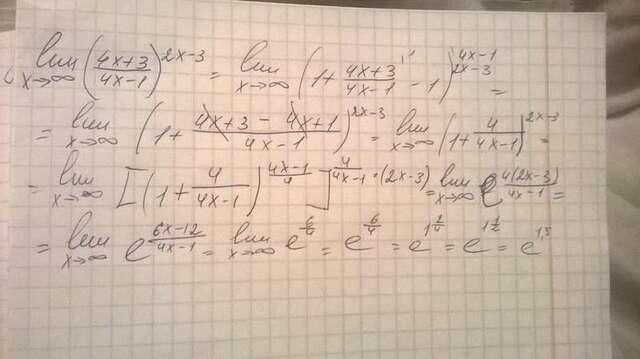 lim x→∞ ((4x+3)/(4x-1))^(2x-3) = lim x→∞ (1+(4x+3)/(4x-1) - 1)^(2x-3) =
= lim x→∞ (1+(4x+3-4x+1)/(4x-1))^(2x-3) = lim x→∞ (1+4/(4x-1))^(2x-3) =
= lim x→∞ [(1+4/(4x-1))^((4x-1)/4)]^(4/(4x-1)·(2x-3)) = lim x→∞ e^(4(2x-3)/(4x-1)) =
= lim x→∞ e^((6x-12)/(4x-1)) = lim x→∞ e^(6/4) = e^(6/4) = e^(1 2/4) = e^(1 1/2) = e^(1,5)